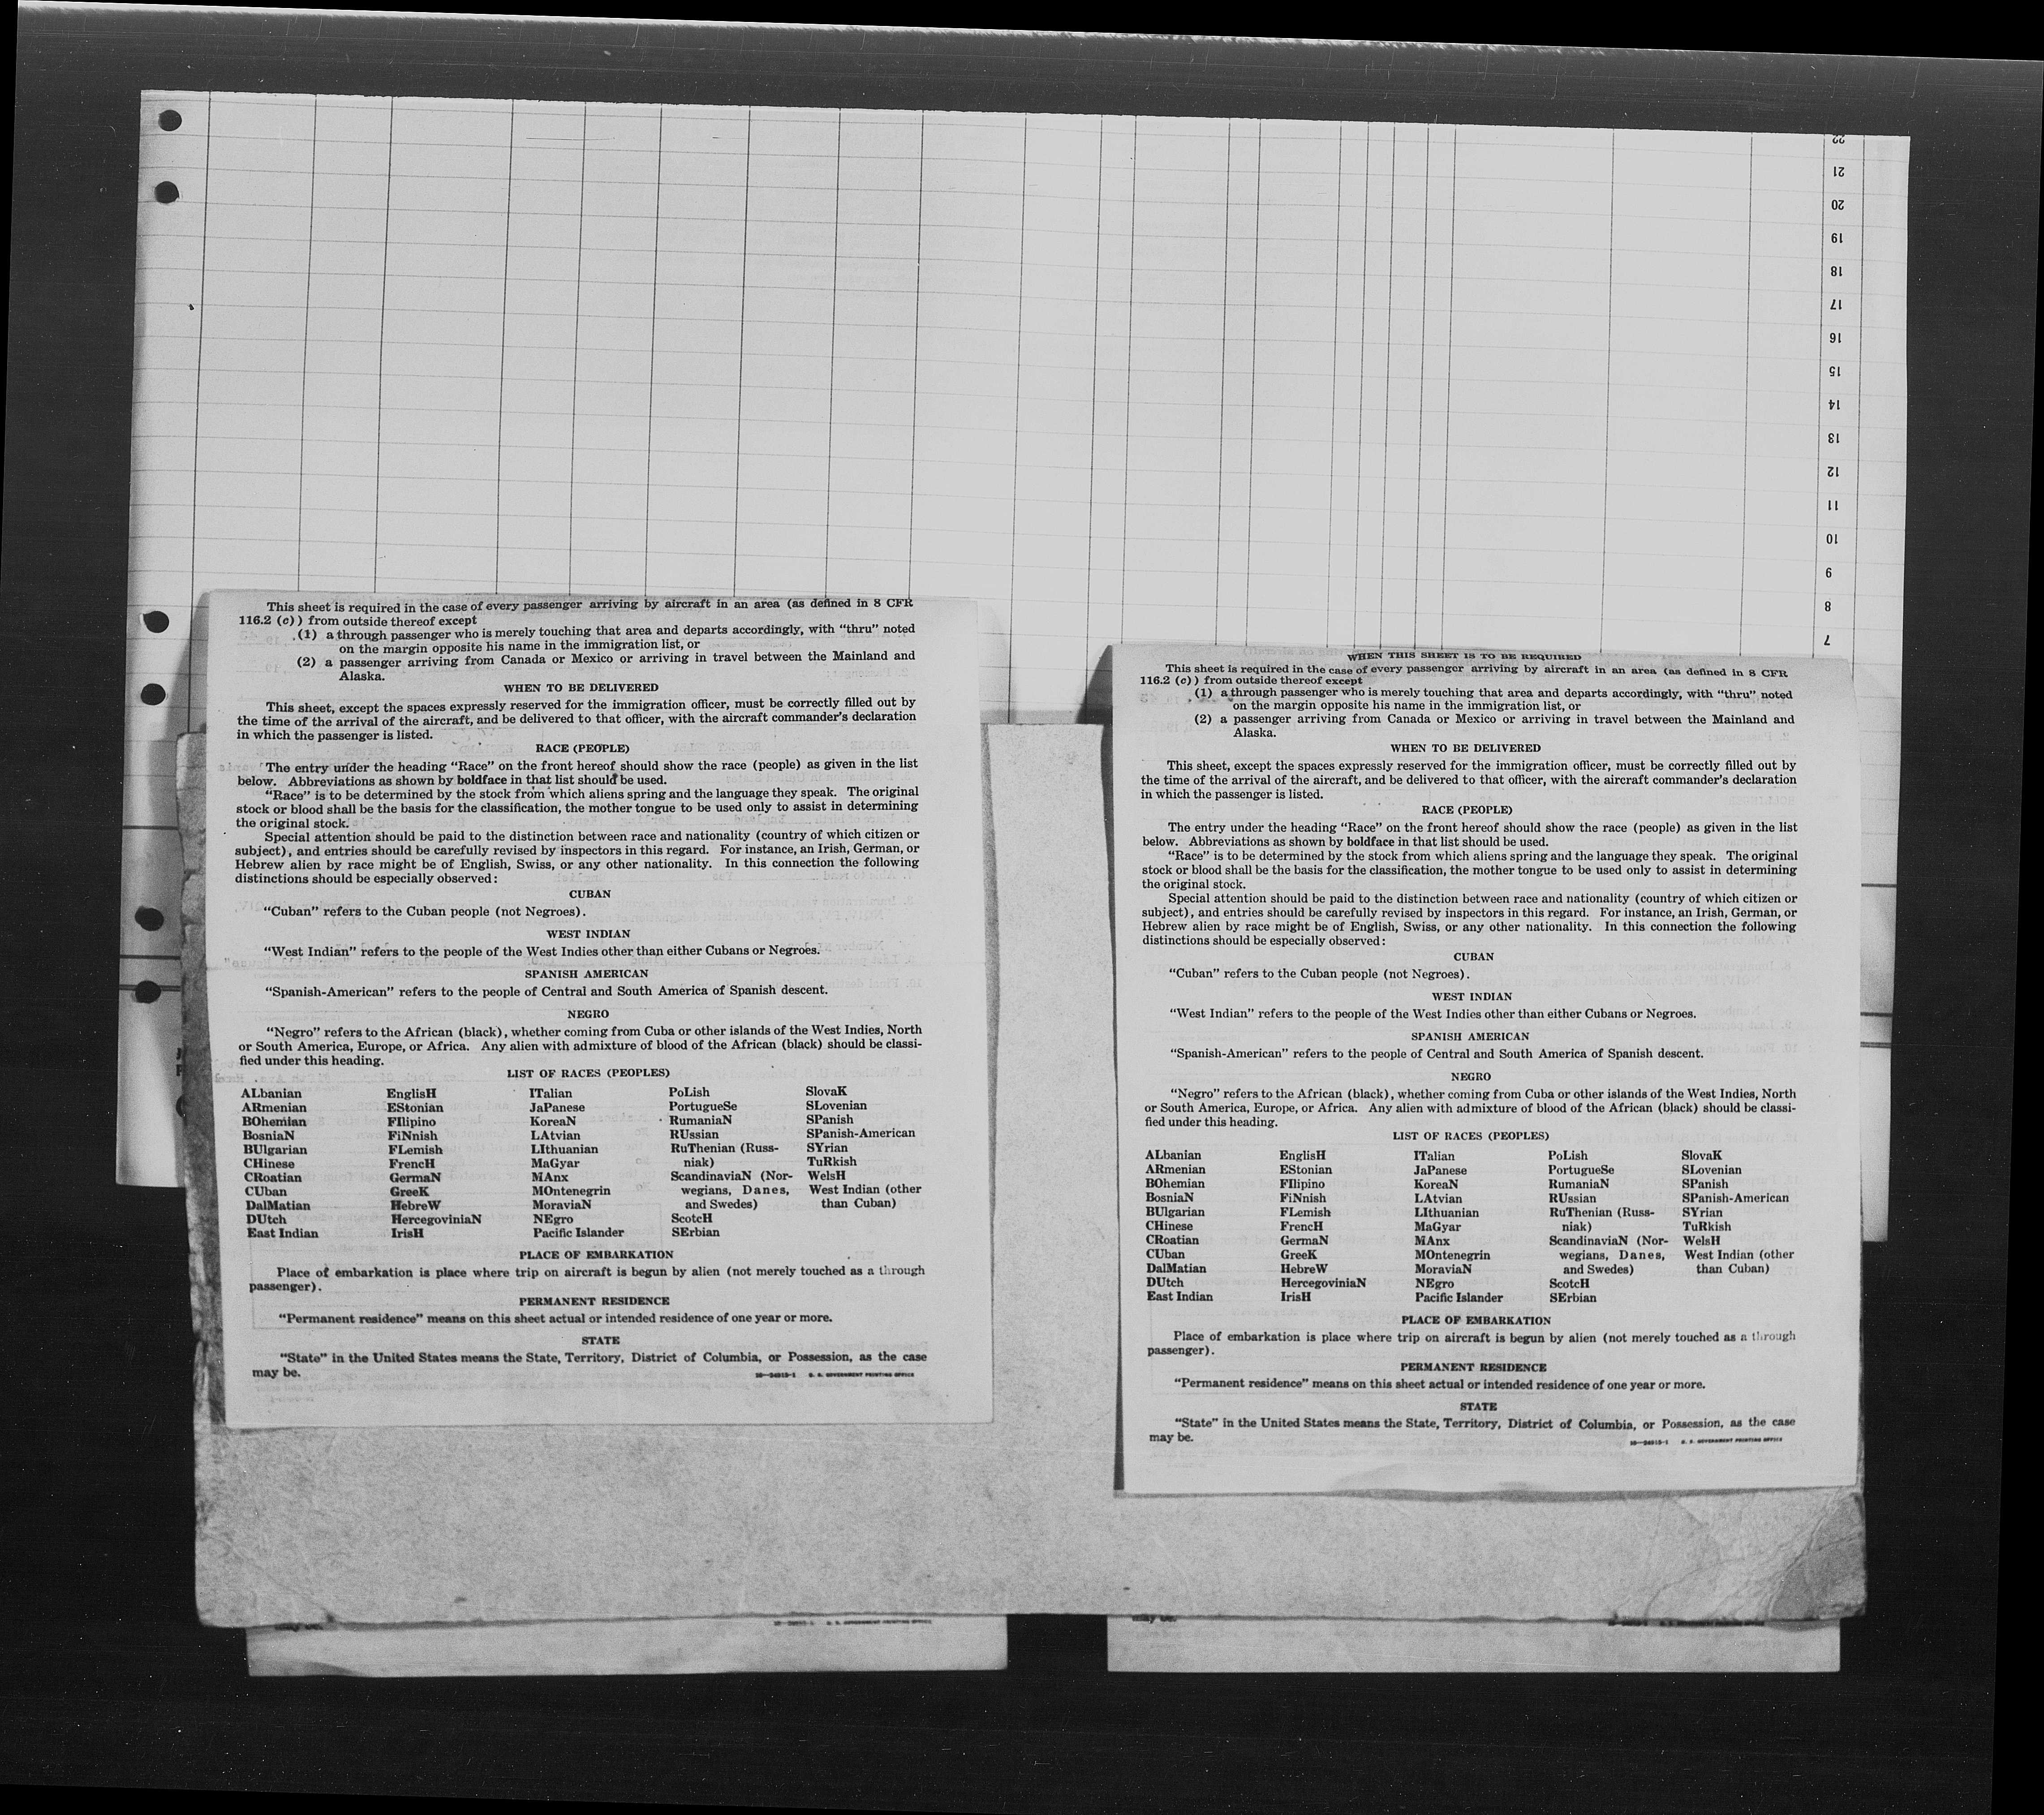 22
21
20
19
18
17
16
15
14
13
12
11
10
9
8
7
This sheet is required in the case of every passenger arriving by aircraft in an area (as defined in 8 CFR
116.2 (c)) from outside thereof except
(1) a through passenger who is merely touching that area and departs accordingly, with “thru” noted
on the margin opposite his name in the immigration list, or
(2) a passenger arriving from Canada or Mexico or arriving in travel between the Mainland and
Alaska.
WHEN TO BE DELIVERED
This sheet, except the spaces expressly reserved for the immigration officer, must be correctly filled out by
the time of the arrival of the aircraft, and be delivered to that officer, with the aircraft commander’s declaration
in which the passenger is listed.
RACE (PEOPLE)
The entry under the heading “Race” on the front hereof should show the race (people) as given in the list
below. Abbreviations as shown by boldface in that list should be used.
“Race” is to be determined by the stock from which aliens spring and the language they speak. The original
stock or blood shall be the basis for the classification, the mother tongue to be used only to assist in determining
the original stock.
Special attention should be paid to the distinction between race and nationality (country of which citizen or
subject), and entries should be carefully revised by inspectors in this regard. For instance, an Irish, German, or
Hebrew alien by race might be of English, Swiss, or any other nationality. In this connection the following
distinctions should be especially observed:
CUBAN
“Cuban” refers to the Cuban people (not Negroes).
WEST INDIAN
“West Indian” refers to the people of the West Indies other than either Cubans or Negroes.
SPANISH AMERICAN
“Spanish-American” refers to the people of Central and South America of Spanish descent.
NEGRO
“Negro” refers to the African (black), whether coming from Cuba or other islands of the West Indies, North
or South America, Europe, or Africa. Any alien with admixture of blood of the African (black) should be classi-
fied under this heading.
LIST OF RACES (PEOPLES)
ALbanian EnglisH ITalian PoLish SlovaK
ARmenian EStonian JaPanese PortugueSe SLovenian
BOhemian FIlipino KoreaN RumaniaN SPanish
BosniaN FiNnish LAtvian RUssian SPanish-American
BUlgarian FLemish LIthuanian RuThenian (Russ- SYrian
CHinese FrencH MaGyar niak) TuRkish
CRoatian GermaN MAnx ScandinaviaN (Nor- WelsH
CUban GreeK MOntenegrin wegians, Danes, West Indian (other
DalMatian HebreW MoraviaN and Swedes) than Cuban)
DUtch HercegoviniaN NEgro ScotcH
East Indian IrisH Pacific Islander SErbian
PLACE OF EMBARKATION
Place of embarkation is place where trip on aircraft is begun by alien (not merely touched as a through
passenger).
PERMANENT RESIDENCE
“Permanent residence” means on this sheet actual or intended residence of one year or more.
STATE
“State” in the United States means the State, Territory, District of Columbia, or Possession, as the case
may be. U. S. GOVERNMENT PRINTING OFFICE
WHEN THIS SHEET IS TO BE REQUIRED
This sheet is required in the case of every passenger arriving by aircraft in an area (as defined in 8 CFR
116.2 (c)) from outside thereof except
(1) a through passenger who is merely touching that area and departs accordingly, with “thru” noted
on the margin opposite his name in the immigration list, or
(2) a passenger arriving from Canada or Mexico or arriving in travel between the Mainland and
Alaska.
WHEN TO BE DELIVERED
This sheet, except the spaces expressly reserved for the immigration officer, must be correctly filled out by
the time of the arrival of the aircraft, and be delivered to that officer, with the aircraft commander’s declaration
in which the passenger is listed.
RACE (PEOPLE)
The entry under the heading “Race” on the front hereof should show the race (people) as given in the list
below. Abbreviations as shown by boldface in that list should be used.
“Race” is to be determined by the stock from which aliens spring and the language they speak. The original
stock or blood shall be the basis for the classification, the mother tongue to be used only to assist in determining
the original stock.
Special attention should be paid to the distinction between race and nationality (country of which citizen or
subject), and entries should be carefully revised by inspectors in this regard. For instance, an Irish, German, or
Hebrew alien by race might be of English, Swiss, or any other nationality. In this connection the following
distinctions should be especially observed:
CUBAN
“Cuban” refers to the Cuban people (not Negroes).
WEST INDIAN
“West Indian” refers to the people of the West Indies other than either Cubans or Negroes.
SPANISH AMERICAN
“Spanish-American” refers to the people of Central and South America of Spanish descent.
NEGRO
“Negro” refers to the African (black), whether coming from Cuba or other islands of the West Indies, North
or South America, Europe, or Africa. Any alien with admixture of blood of the African (black) should be classi-
fied under this heading.
LIST OF RACES (PEOPLES)
ALbanian EnglisH ITalian PoLish SlovaK
ARmenian EStonian JaPanese PortugueSe SLovenian
BOhemian FIlipino KoreaN RumaniaN SPanish
BosniaN FiNnish LAtvian RUssian SPanish-American
BUlgarian FLemish LIthuanian RuThenian (Russ- SYrian
CHinese FrencH MaGyar niak) TuRkish
CRoatian GermaN MAnx ScandinaviaN (Nor- WelsH
CUban GreeK MOntenegrin wegians, Danes, West Indian (other
DalMatian HebreW MoraviaN and Swedes) than Cuban)
DUtch HercegoviniaN NEgro ScotcH
East Indian IrisH Pacific Islander SErbian
PLACE OF EMBARKATION
Place of embarkation is place where trip on aircraft is begun by alien (not merely touched as a through
passenger).
PERMANENT RESIDENCE
“Permanent residence” means on this sheet actual or intended residence of one year or more.
STATE
“State” in the United States means the State, Territory, District of Columbia, or Possession, as the case
may be. U. S. GOVERNMENT PRINTING OFFICE